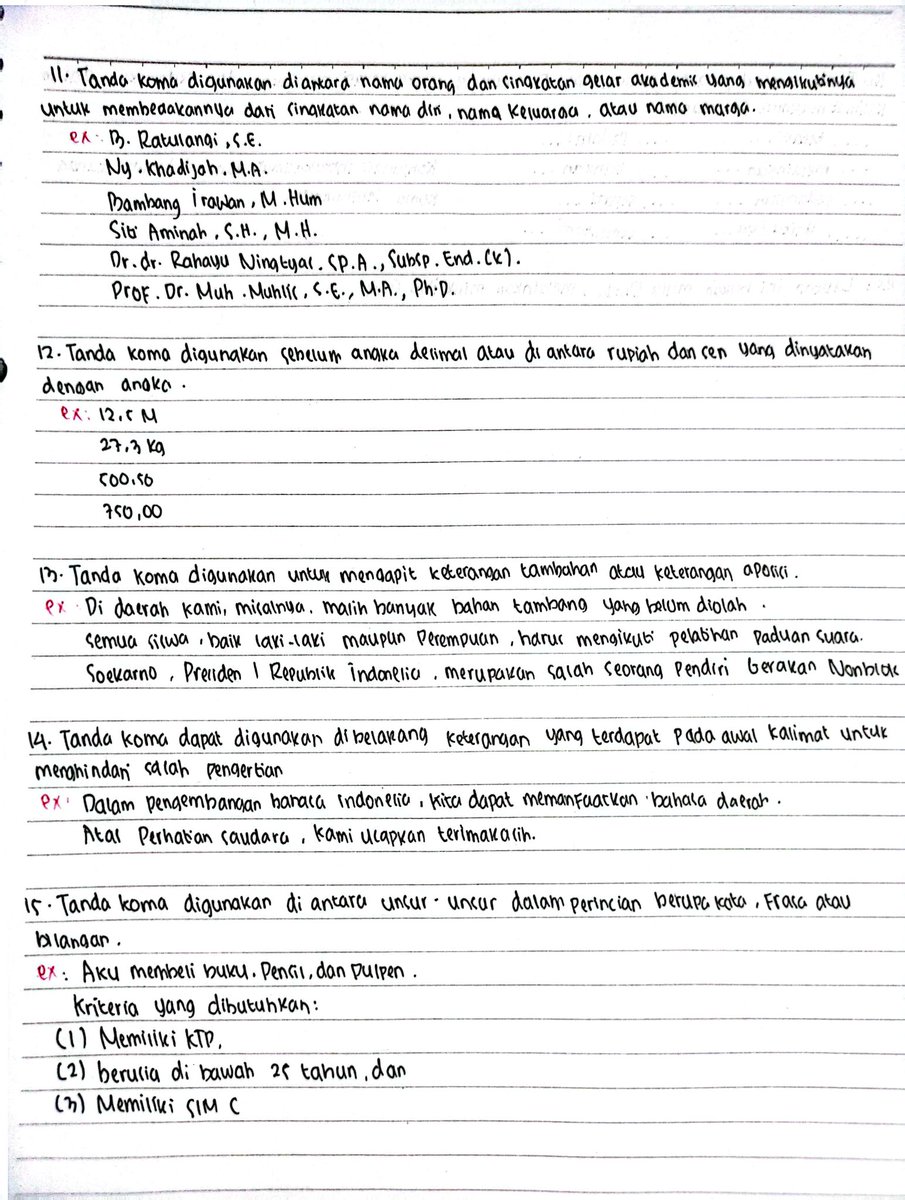 11. Tanda koma digunakan diantara nama orang dan singkatan gelar akademis yang mengikutinya
untuk membedakannya dari singkatan nama diri, nama keluarga, atau nama marga.
ex: B. Ratulangi, S.E.
Ny. Khadijah, M.A.
Bambang Irawan, M.Hum
Siti Aminah, S.H., M.H.
Dr. dr. Rahayu Ningtyas, SP.A., Subsp. End. (K).
Prof. Dr. Muh. Muhlis, S.E., M.A., Ph.D.
12. Tanda koma digunakan sebelum angka desimal atau di antara rupiah dan sen yang dinyatakan
dengan angka.
ex: 12,5 M
27,3 kg
500,50
750,00
13. Tanda koma digunakan untuk mengapit keterangan tambahan atau keterangan aposisi.
ex: Di daerah kami, misalnya, masih banyak bahan tambang yang belum diolah.
semua siswa, baik laki-laki maupun Perempuan, harus mengikuti pelatihan Paduan suara.
Soekarno, Presiden 1 Republik Indonesia, merupakan salah seorang Pendiri Gerakan Nonblok
14. Tanda koma dapat digunakan dibelakang keterangan yang terdapat pada awal kalimat untuk
menghindari salah pengertian
ex: Dalam pengembangan bahasa indonesia, kita dapat memanfaatkan bahasa daerah.
Atas Perhatian saudara, kami ucapkan terimakasih.
15. Tanda koma digunakan di antara unsur-unsur dalam perincian berupa kata, Frasa atau
bilangan.
ex: Aku membeli buku, Pensil, dan Pulpen.
Kriteria yang dibutuhkan:
(1) Memiliki KTP,
(2) berusia di bawah 25 tahun, dan
(3) Memiliki SIM C